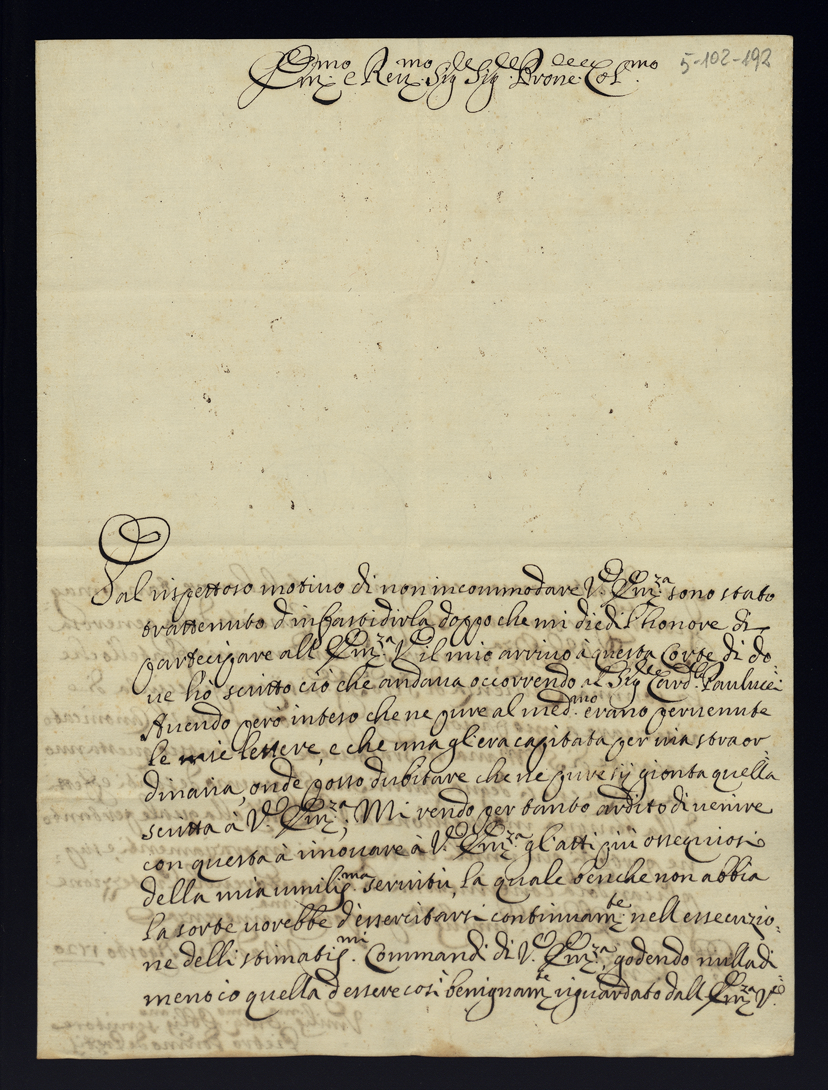 Em.mo e Reu.mo Sig.re Sig.re Prone Col.mo
5-102-192
Dal rispettoso motiuo di non incommodare V. Em.za sono stato
trattenuto d'infastidirla doppo che mi diedi l'honore di
partecipare all Em.za V. il mio arriuo à questa Corte di do=
ue hò scritto ciò che andaua occorrendo al Sig.re Card.le Paulucci
Auendo però inteso che ne pure al med.mo erano peruenute
le mie lettere, e che una gl'era capitata per uia straor=
dinaria, onde posso dubitare che ne pure sij gionta quella
scritta à V. Em.za; Mi rendo per tanto ardito di uenire
con questa à rinouare à V. Em.za gl'atti più ossequiosi
della mia umilis.ma seruitù, la quale benche non abbia
la sorte uorebbe d'essercitarsi continuam.te nell essecuzio=
ne delli stimatis.mi Commandi di V. Em.za, godendo nulla di
meno io quella d'essere così benignam.te riguardato dall Em.za V.